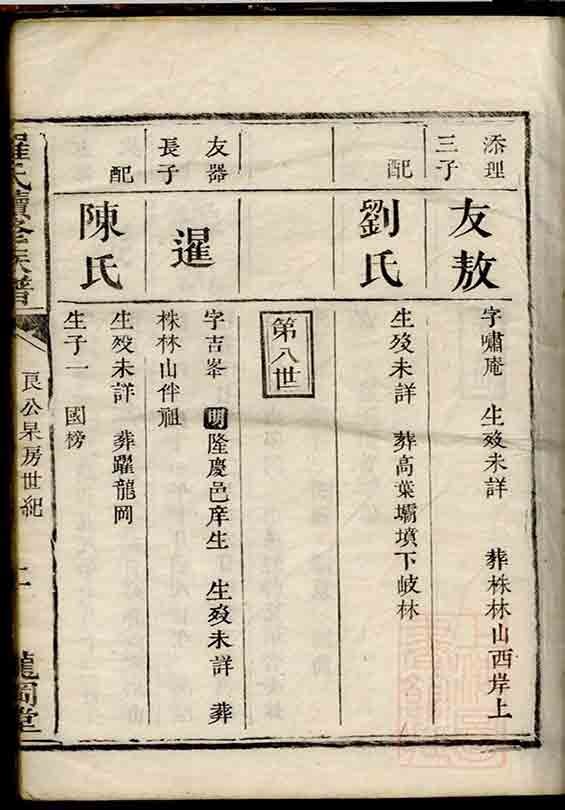 添理
三子
友敖
字嘯庵 生歿未詳 葬株林山西岸上
配
劉氏
生歿未詳 葬高葉壩墳下岐林
第八世
友器
長子
暹
字吉峯 明隆慶邑庠生 生歿未詳 葬
株林山伴祖
配
陳氏
生歿未詳 葬躍龍岡
生子一 國榜
羅氏續修族譜
良公杲房世紀
龍岡堂